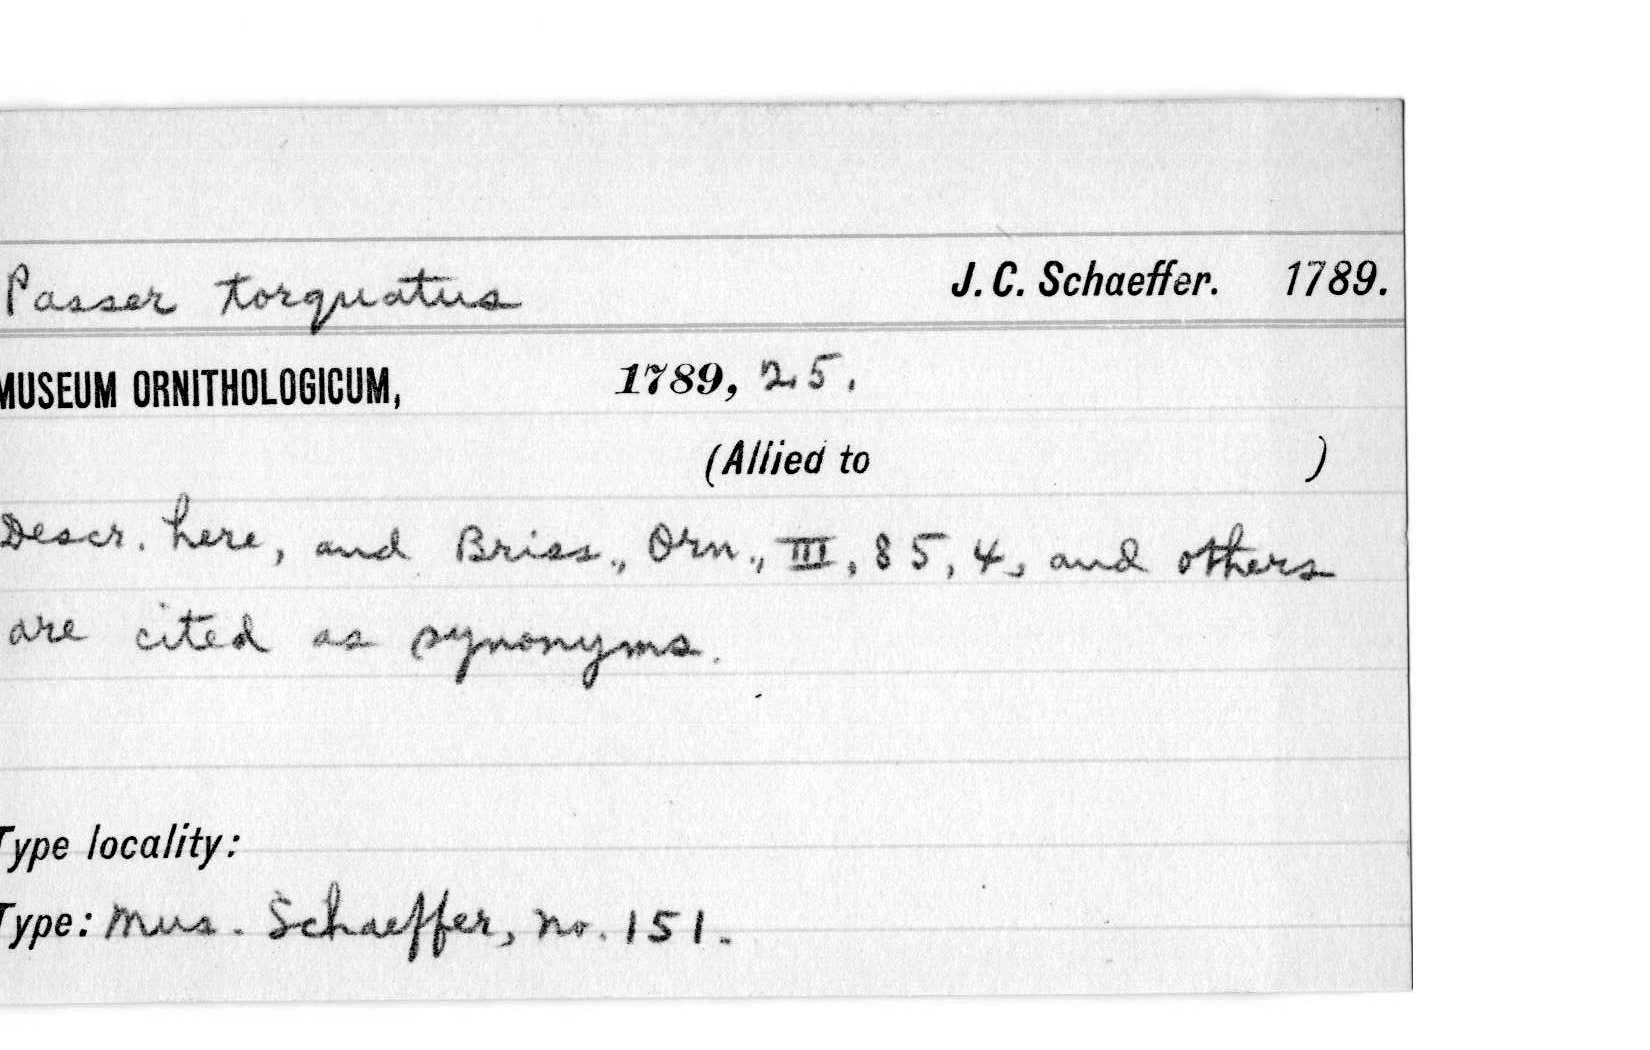 Passer torquatus J. C. Schaeffer. 1789.
MUSEUM ORNITHOLOGICUM, 1789, 25.
(Allied to )
Descr. here, and Briss., Orn., III, 85, 4, and others
are cited as synonyms.
Type locality:
Type: Mus. Schaeffer, no. 151.